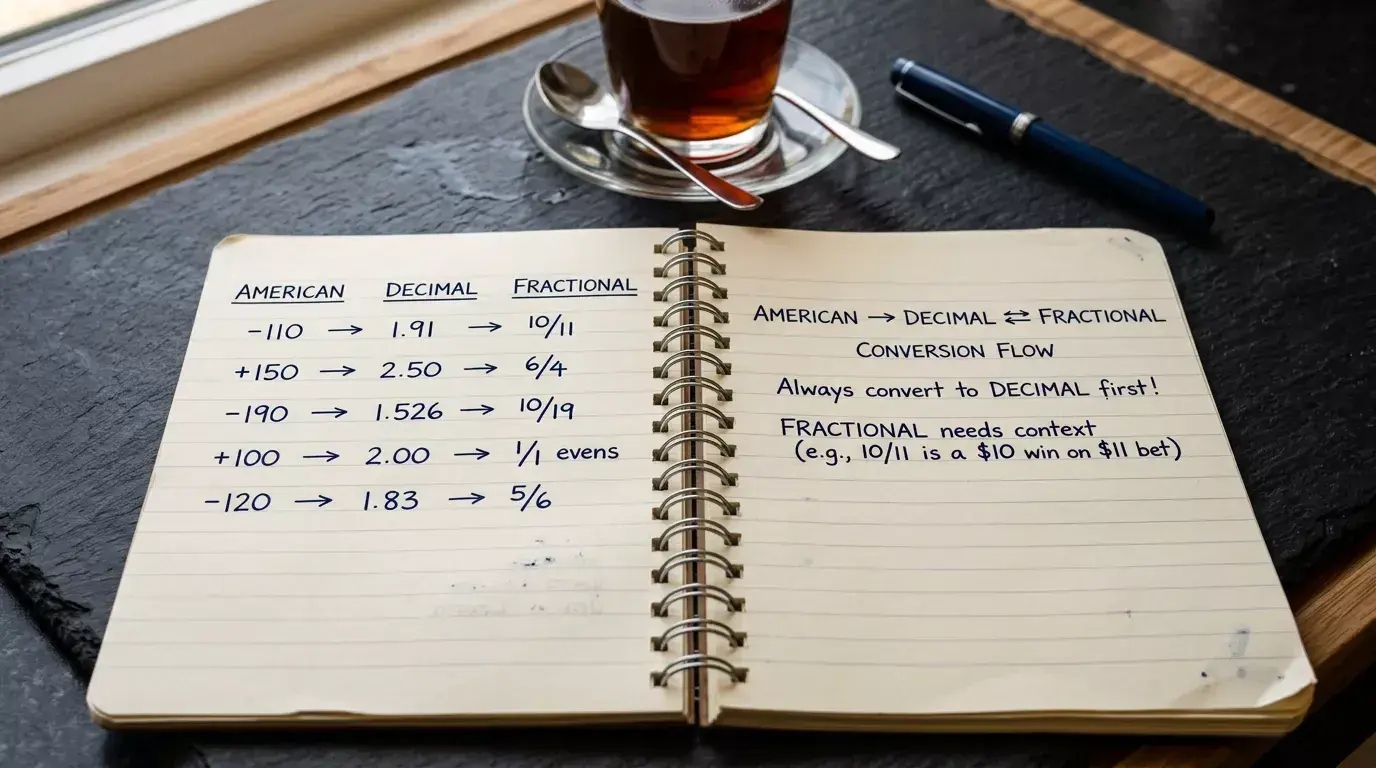 AMERICAN DECIMAL FRACTIONAL
-110 → 1.91 → 10/11
+150 → 2.50 → 6/4
-190 → 1.526 → 10/19
+100 → 2.00 → 1/1 evens
-120 → 1.83 → 5/6
AMERICAN → DECIMAL ⇌ FRACTIONAL
CONVERSION FLOW
Always convert to DECIMAL first!
FRACTIONAL needs context
(e.g., 10/11 is a $10 win on $11 bet)